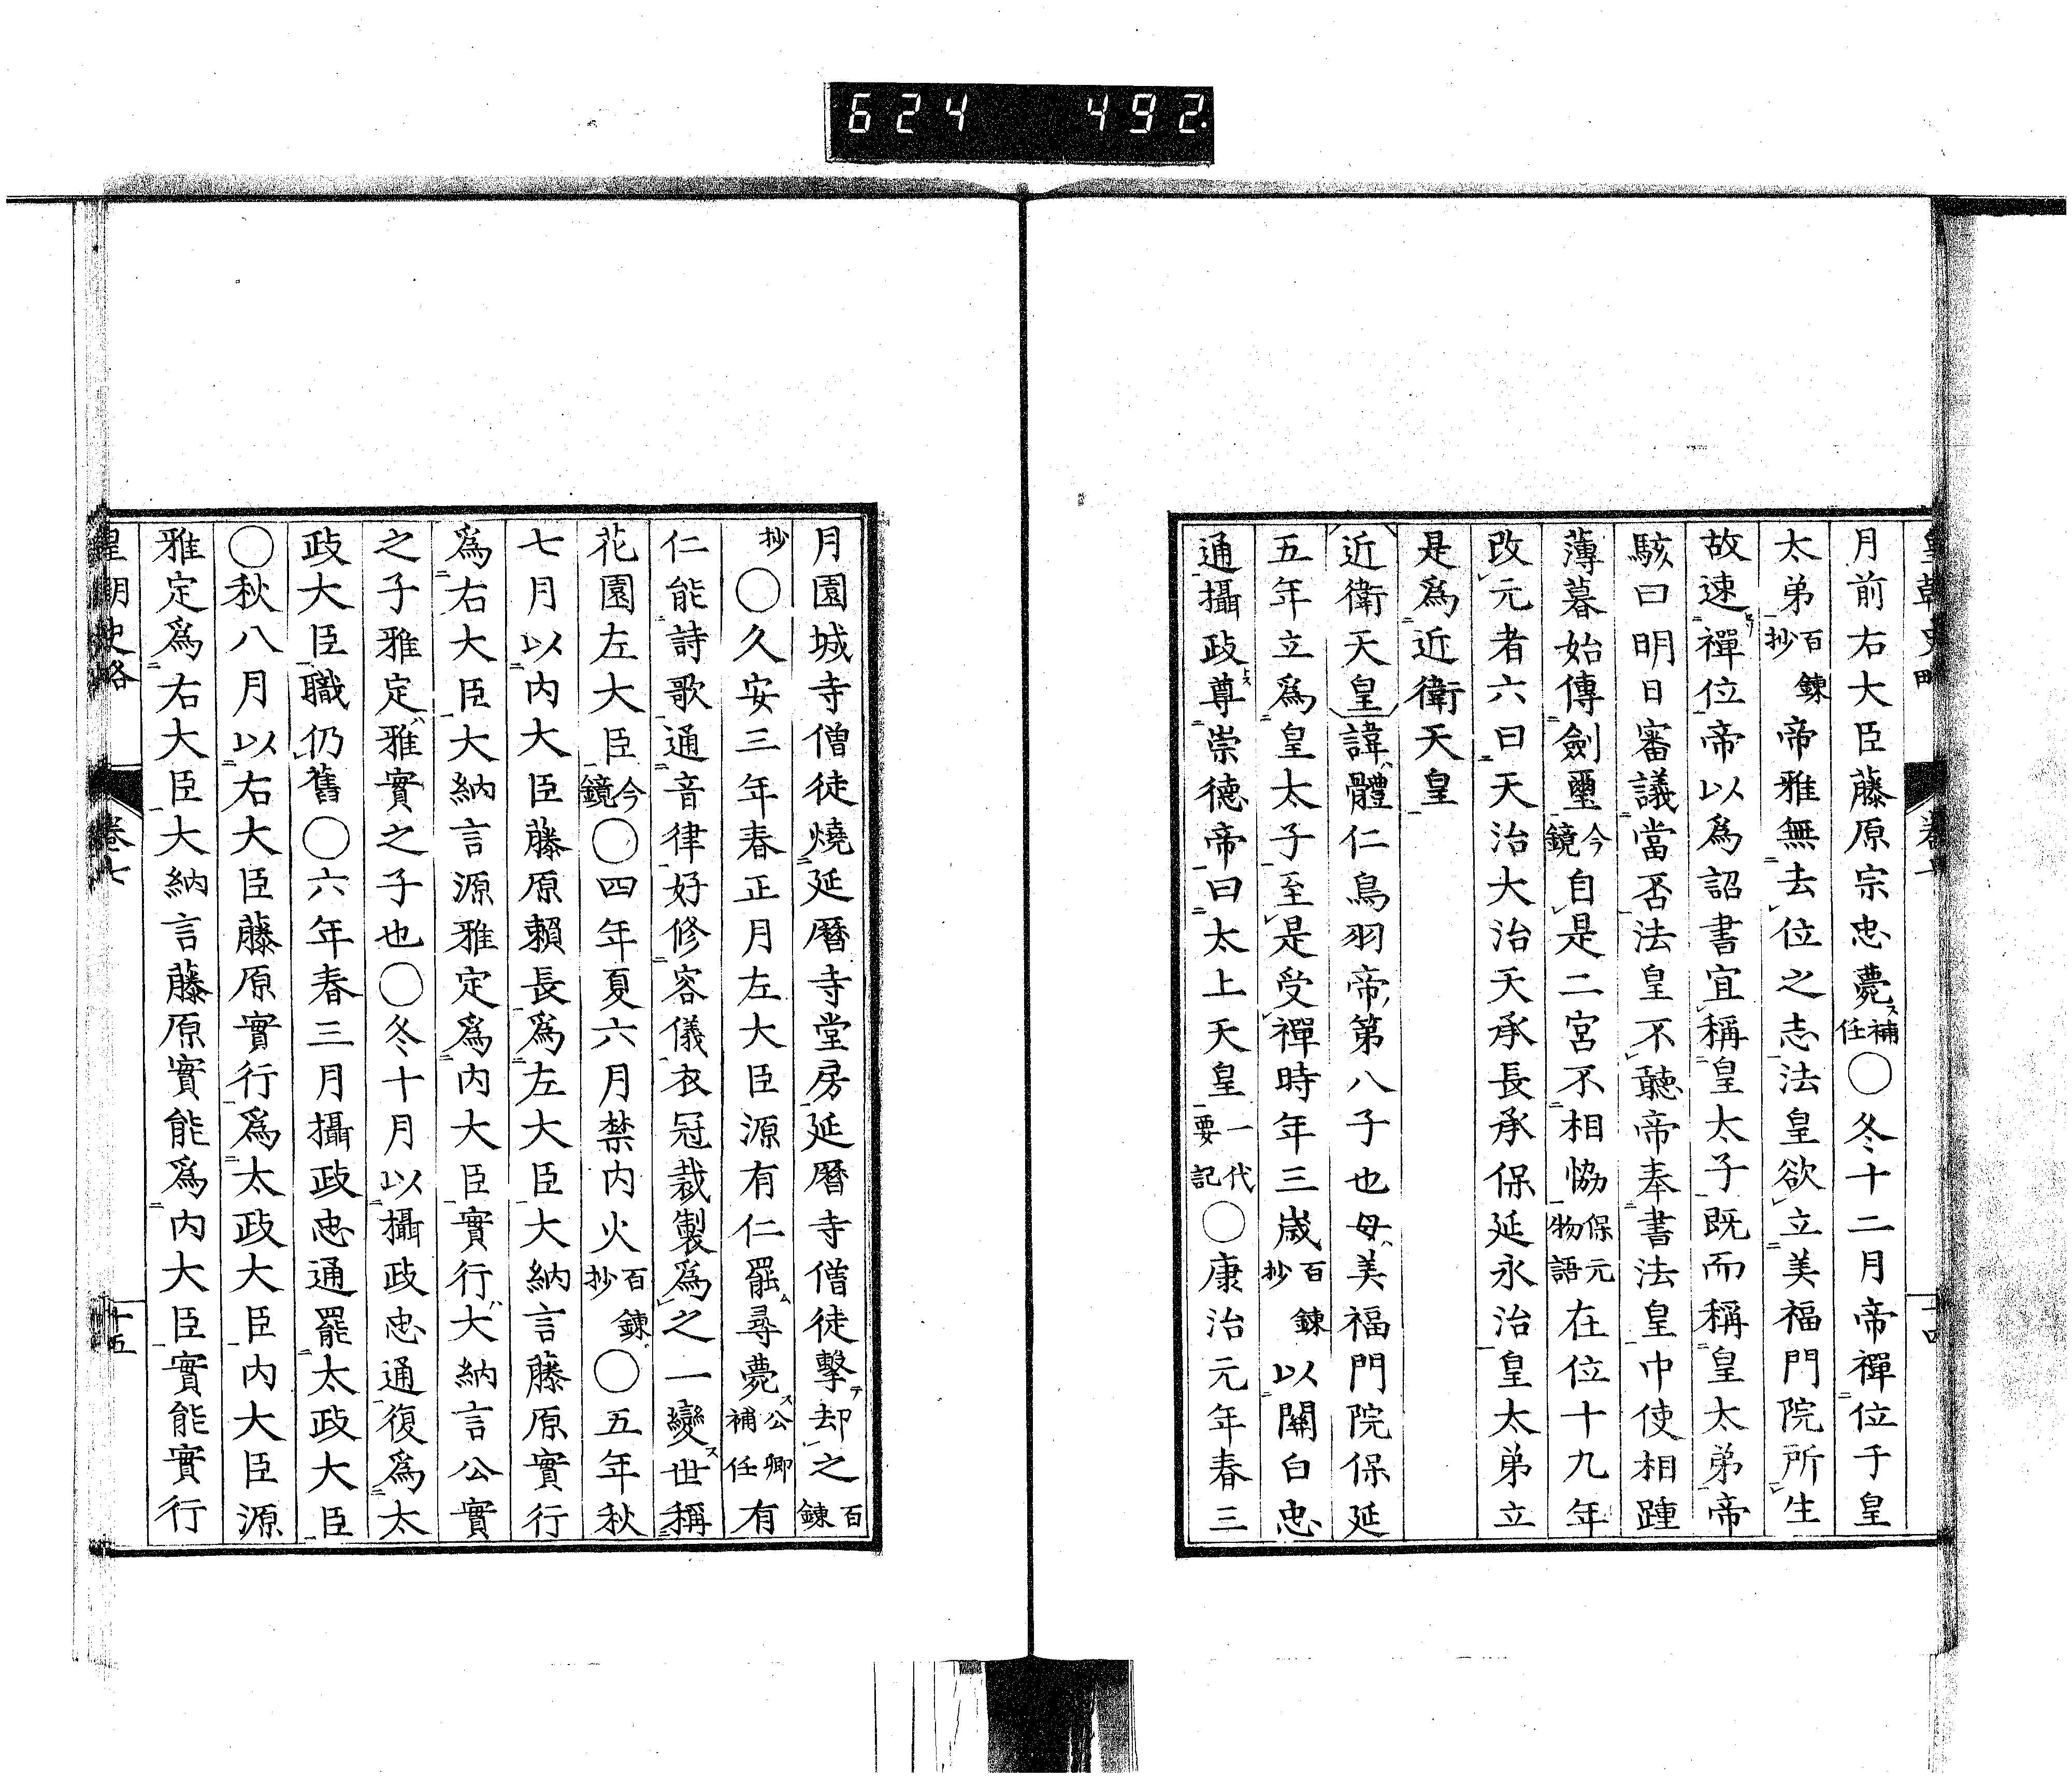 624 492
月前右大臣藤原宗忠薨補任〇冬十二月帝禪位于皇
太弟百鍊抄帝雅無去位之志法皇欲立美福門院所生
故速禪位帝以爲詔書宜稱皇太子既而稱皇太弟帝
駭曰明日審議當否法皇不聽帝奉書法皇中使相踵
薄暮始傳劍璽今鏡自是二宮不相恊保元物語在位十九年
改元者六曰天治大治天承長承保延永治皇太弟立
是爲近衛天皇
近衛天皇諱體仁鳥羽帝第八子也母美福門院保延
五年立爲皇太子至是受禪時年三歲百鍊抄以關白忠
通攝政尊崇德帝曰太上天皇一代要記〇康治元年春三
月園城寺僧徒燒延曆寺堂房延曆寺僧徒擊却之百鍊
抄〇久安三年春正月左大臣源有仁罷尋薨公卿補任有
仁能詩歌通音律好修容儀衣冠裁製爲之一變世稱
花園左大臣今鏡〇四年夏六月禁内火百鍊抄〇五年秋
七月以内大臣藤原賴長爲左大臣大納言藤原實行
爲右大臣大納言源雅定爲内大臣實行大納言公實
之子雅定雅實之子也〇冬十月以攝政忠通復爲太
政大臣職仍舊〇六年春三月攝政忠通罷太政大臣
〇秋八月以右大臣藤原實行爲太政大臣内大臣源
雅定爲右大臣大納言藤原實能爲内大臣實能實行
皇朝史略 卷七 十五